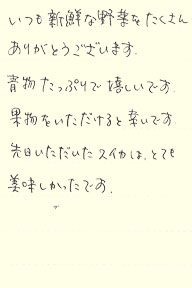 いつも新鮮な野菜をたくさん
ありがとうございます.
青物たっぷりで嬉しいです.
果物をいただけると幸いです
先日いただいたスイカは、とても
美味しかったです.